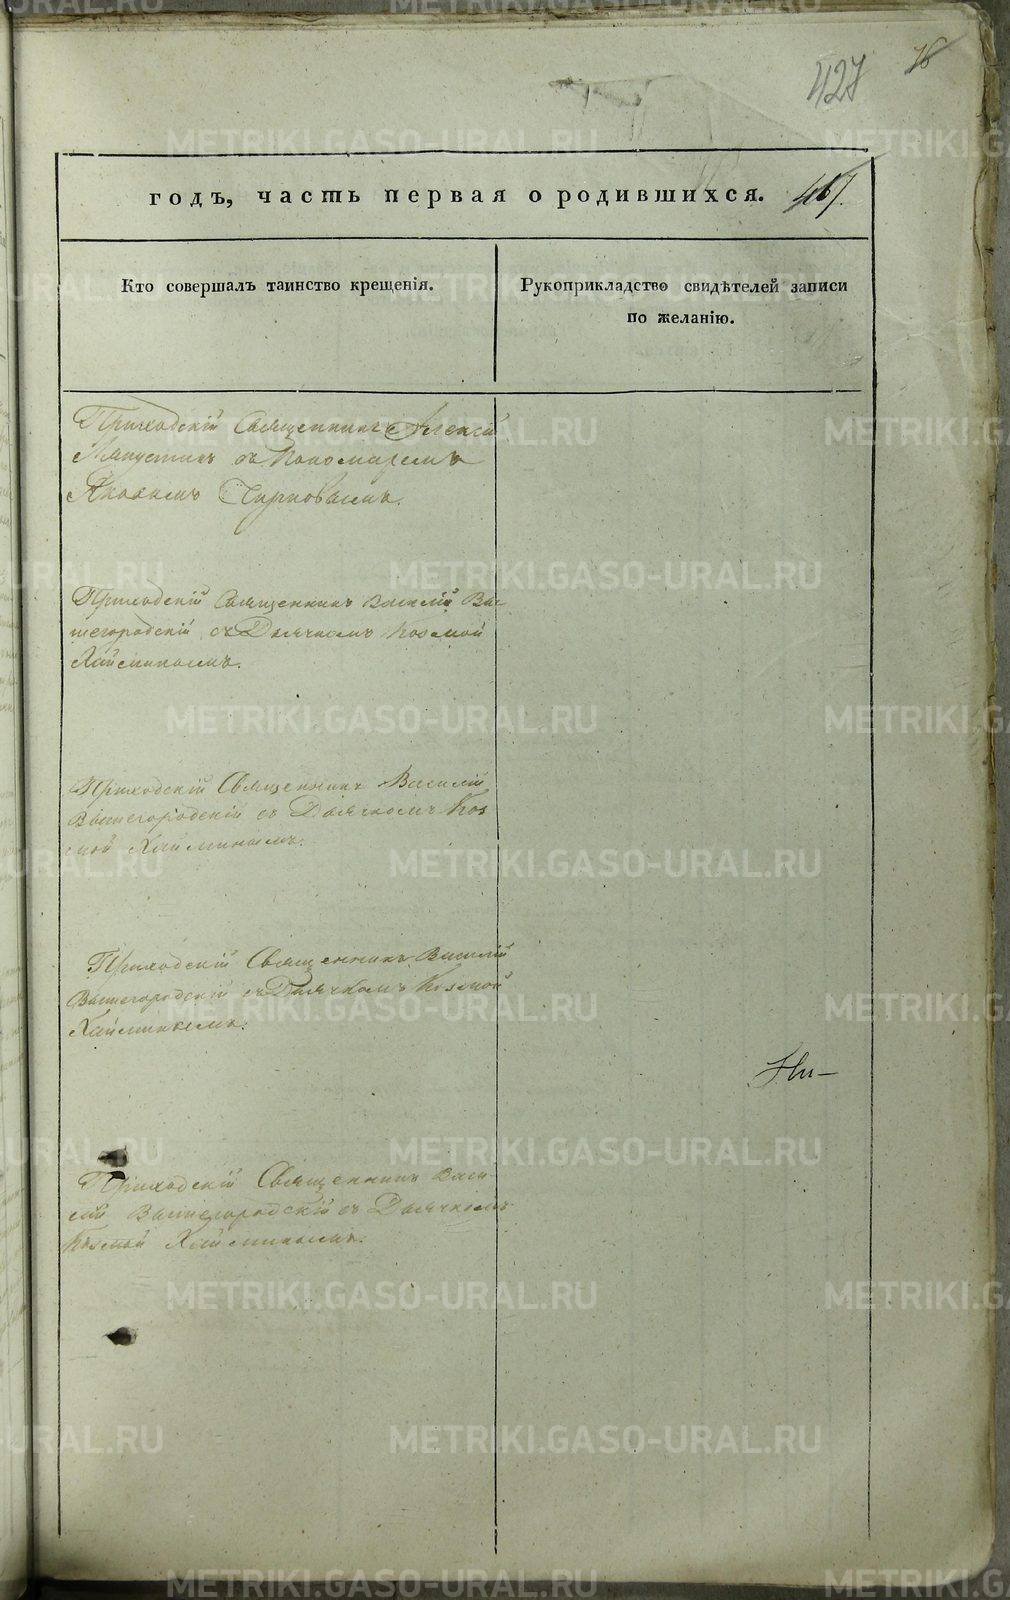 76
427
годъ, часть первая о родившихся. 467.
Кто совершалъ таинство крещенія.
Рукоприкладство свидѣтелей записи
по желанію.
Приходскій Священникъ Алексій
съ Пономаремъ
Яковомъ
Приходскій Священникъ Василій Вы-
шегородскій съ Дьячкомъ Козмой
Хайминымъ.
Приходскій Священникъ Василій
Вышегородскій съ Дьячкомъ Коз
мой Хайминымъ.
Приходскій Священникъ Василій
Вышегородскій съ Дьячкомъ Козмой
Хайминымъ.
Приходскій Священникъ Васи-
лій Вышегородскій съ Дьячкомъ
Козмой Хайминымъ.
METRIKI.GASO-URAL.RU